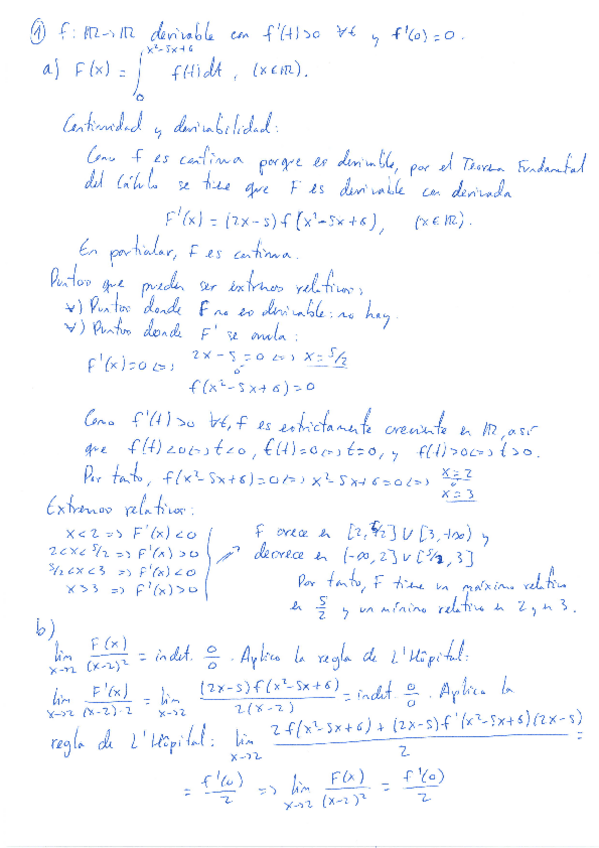 ① f: ℝ→ℝ derivable con f'(t)>0 ∀t y f'(0)=0.
a) F(x) = ∫₀^{x²-5x+6} f(t)dt, (x∈ℝ).
Continuidad y derivabilidad:
Como f es continua porque es derivable, por el Teorema Fundamental
del Cálculo se tiene que F es derivable con derivada
F'(x) = (2x-5) f(x²-5x+6), (x∈ℝ).
En particular, F es continua.
Puntos que pueden ser extremos relativos:
*) Puntos donde F no es derivable: no hay.
*) Puntos donde F' se anula:
F'(x)=0 <=> 2x-5=0 <=> x=5/2
ó
f(x²-5x+6)=0
Como f'(t)>0 ∀t, f es estrictamente creciente en ℝ, así
que f(t)<0<=>t<0, f(t)=0<=>t=0, y f(t)>0<=>t>0.
Por tanto, f(x²-5x+6)=0<=> x²-5x+6=0<=> x=2 ó x=3
Extremos relativos:
x<2 => F'(x)<0
2<x<5/2 => F'(x)>0
5/2<x<3 => F'(x)<0
x>3 => F'(x)>0
F crece en [2,5/2]∪[3,+∞) y
decrece en (-∞,2]∪[5/2,3]
Por tanto, F tiene un máximo relativo
en 5/2 y un mínimo relativo en 2 y en 3.
b)
lim_{x→2} F(x)/(x-2)² = indet. 0/0. Aplico la regla de L'Hôpital:
lim_{x→2} F'(x)/((x-2)·2) = lim_{x→2} (2x-5)f(x²-5x+6)/(2(x-2)) = indet. 0/0. Aplico la
regla de L'Hôpital: lim_{x→2} (2f(x²-5x+6)+(2x-5)f'(x²-5x+6)(2x-5))/2 =
= f'(0)/2 => lim_{x→2} F(x)/(x-2)² = f'(0)/2